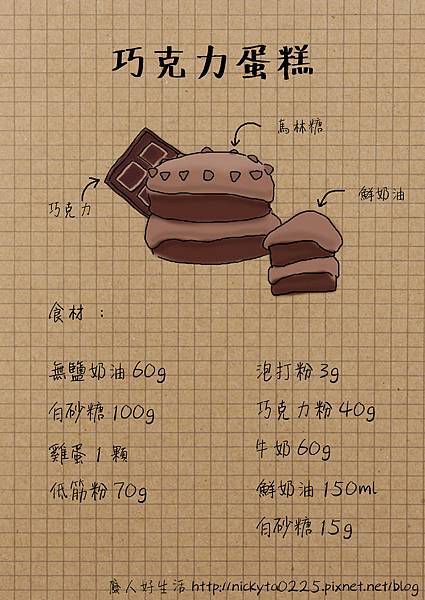 巧克力蛋糕
馬林糖
巧克力
鮮奶油
食材：
無鹽奶油 60g
白砂糖 100g
雞蛋 1 顆
低筋粉 70g
泡打粉 3g
巧克力粉 40g
牛奶 60g
鮮奶油 150ml
白砂糖 15g
廢人好生活 http://nickyto0225.pixnet.net/blog